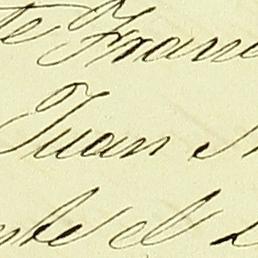 te Fran
Juan
nte el